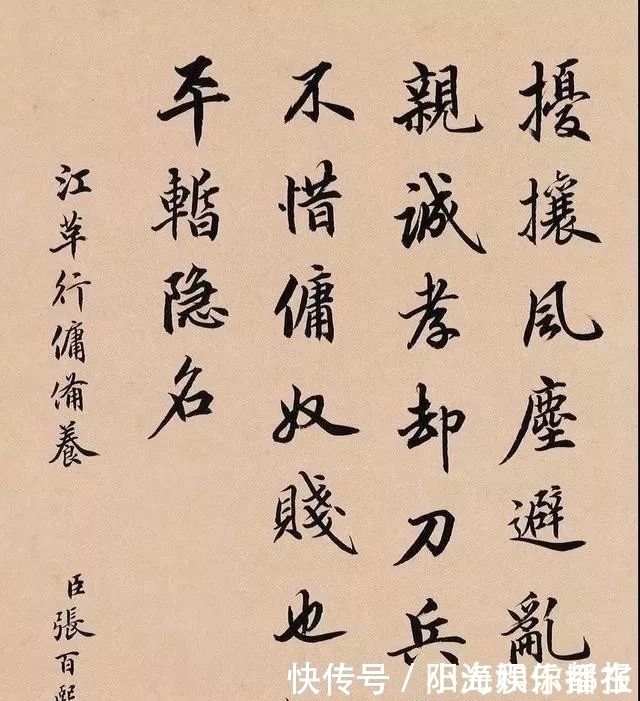 擾攘風塵避亂
親誠孝却刀兵
不惜傭奴賤也
平暫隐名
江革行傭備養
臣張百熙
快传号 / 阳